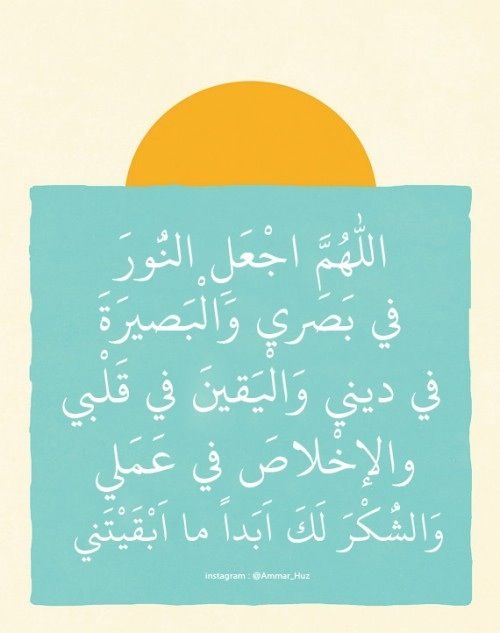 اللّٰهُمَّ اجْعَلِ النُّورَ
في بَصَري وَالْبَصيرَةَ
في ديني وَالْيَقينَ في قَلْبي
والإخْلاصَ في عَمَلي
وَالشُكْرَ لَكَ اَبَداً ما اَبْقَيْتَني
instagram : @Ammar_Huz